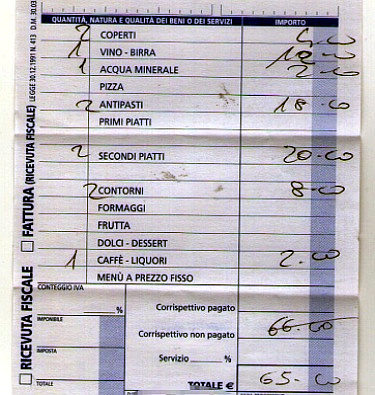 QUANTITÀ, NATURA E QUALITÀ DEI BENI O DEI SERVIZI IMPORTO
2 COPERTI 4-00
1 VINO - BIRRA 12-00
1 ACQUA MINERALE 2-00
PIZZA
2 ANTIPASTI 18-00
PRIMI PIATTI
2 SECONDI PIATTI 20-00
2 CONTORNI 8-00
FORMAGGI
FRUTTA
DOLCI - DESSERT
1 CAFFÈ - LIQUORI 2-00
MENÙ A PREZZO FISSO
CONTEGGIO IVA
%
Corrispettivo pagato
IMPONIBILE
66-00
Corrispettivo non pagato
IMPOSTA
Servizio %
TOTALE
TOTALE € 65-00
RICEVUTA FISCALE FATTURA (RICEVUTA FISCALE)
LEGGE 30.12.1991 N. 413 D.M. 30.03